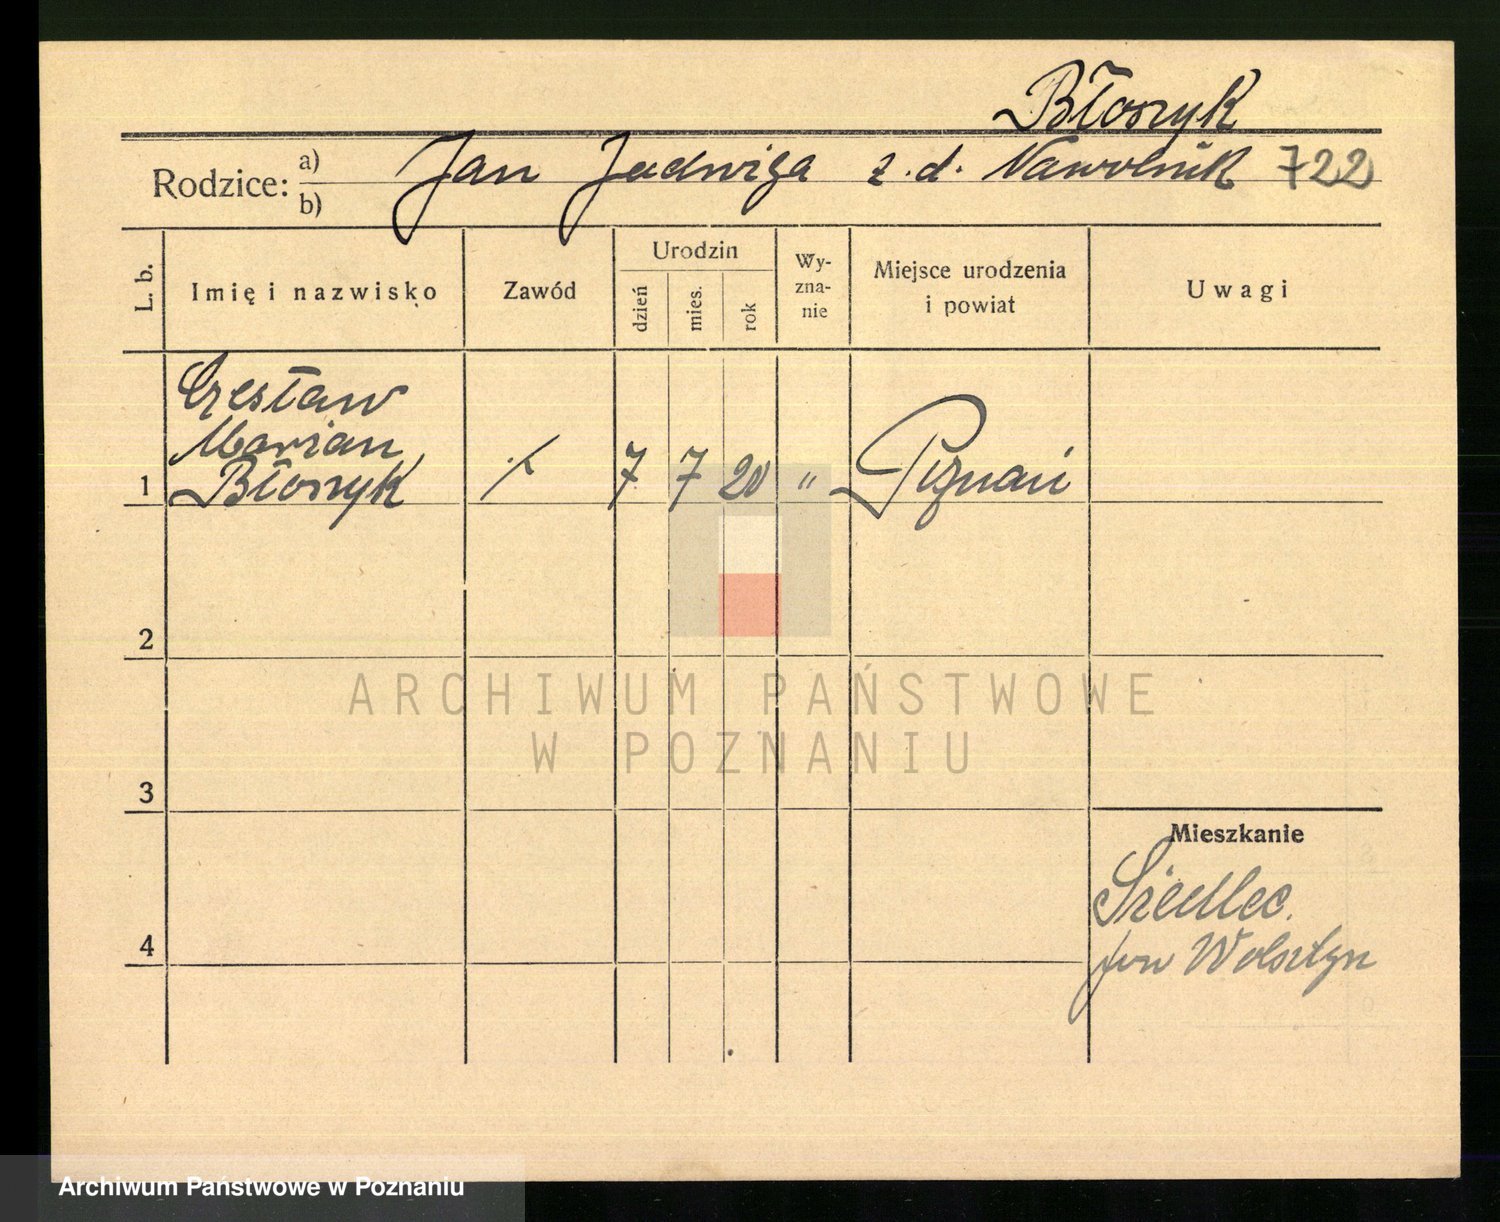 Błoszyk
Rodzice: a) b) Jan Jadwiga z.d. Nawrotnik 722
L. b.
Imię i nazwisko
Zawód
Urodzin
dzień
mies.
rok
Wy-
zna-
nie
Miejsce urodzenia
i powiat
Uwagi
Czesław
Marian
1 Błoszyk 7 7 20 " Poznań
2
ARCHIWUM PAŃSTWOWE
W POZNANIU
3
Mieszkanie
Siedlec
4 pow Wolsztyn
Archiwum Państwowe w Poznaniu